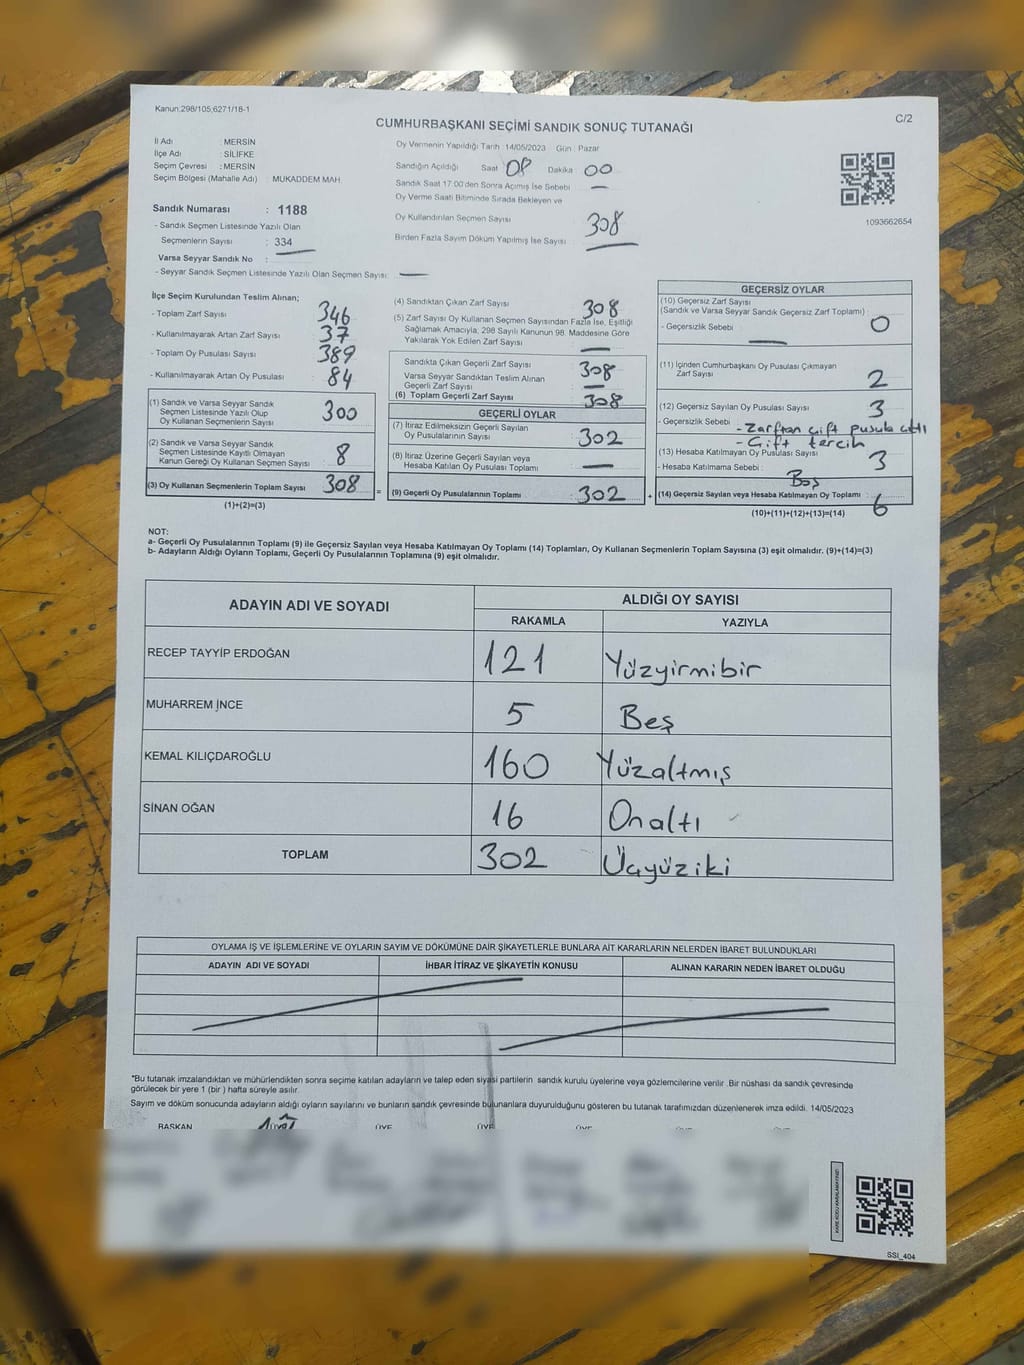 Kanun:298/105,6271/18-1
C/2
CUMHURBAŞKANI SEÇİMİ SANDIK SONUÇ TUTANAĞI
İl Adı : MERSİN
İlçe Adı : SİLİFKE
Seçim Çevresi : MERSİN
Seçim Bölgesi (Mahalle Adı) : MUKADDEM MAH.
Sandık Numarası : 1188
- Sandık Seçmen Listesinde Yazılı Olan
Seçmenlerin Sayısı : 334
Varsa Seyyar Sandık No :
- Seyyar Sandık Seçmen Listesinde Yazılı Olan Seçmen Sayısı:
Oy Vermenin Yapıldığı Tarih :14/05/2023 Gün : Pazar
Sandığın Açıldığı Saat 08 Dakika 00
Sandık Saat 17.00'den Sonra Açımış İse Sebebi
Oy Verme Saati Bitiminde Sırada Bekleyen ve
Oy Kullandırılan Seçmen Sayısı 308
Birden Fazla Sayım Döküm Yapılmış İse Sayısı :
1093662654
İlçe Seçim Kurulundan Teslim Alınan;
- Toplam Zarf Sayısı : 346
- Kullanılmayarak Artan Zarf Sayısı : 37
- Toplam Oy Pusulası Sayısı : 389
- Kullanılmayarak Artan Oy Pusulası : 84
(1) Sandık ve Varsa Seyyar Sandık
Seçmen Listesinde Yazılı Olup
Oy Kullanan Seçmenlerin Sayısı : 300
(2) Sandık ve Varsa Seyyar Sandık
Seçmen Listesinde Kayıtlı Olmayan
Kanun Gereği Oy Kullanan Seçmen Sayısı : 8
(3) Oy Kullanan Seçmenlerin Toplam Sayısı : 308
(1)+(2)=(3)
=
(4) Sandıktan Çıkan Zarf Sayısı : 308
(5) Zarf Sayısı Oy Kullanan Seçmen Sayısından Fazla İse, Eşitliği
Sağlamak Amacıyla, 298 Sayılı Kanunun 98. Maddesine Göre
Yakılarak Yok Edilen Zarf Sayısı :
Sandıkta Çıkan Geçerli Zarf Sayısı : 308
Varsa Seyyar Sandıktan Teslim Alınan
Geçerli Zarf Sayısı :
(6) Toplam Geçerli Zarf Sayısı : 308
GEÇERLİ OYLAR
(7) İtiraz Edilmeksizin Geçerli Sayılan
Oy Pusulalarının Sayısı : 302
(8) İtiraz Üzerine Geçerli Sayılan veya
Hesaba Katılan Oy Pusulası Toplamı :
(9) Geçerli Oy Pusulalarının Toplamı : 302
+
GEÇERSİZ OYLAR
(10) Geçersiz Zarf Sayısı
(Sandık ve Varsa Seyyar Sandık Geçersiz Zarf Toplamı) :
- Geçersizlik Sebebi : 0
(11) İçinden Cumhurbaşkanı Oy Pusulası Çıkmayan
Zarf Sayısı : 2
(12) Geçersiz Sayılan Oy Pusulası Sayısı : 3
- Geçersizlik Sebebi : - Zarftan çift pusula çıktı
- Çift tercih
(13) Hesaba Katılmayan Oy Pusulası Sayısı : 3
- Hesaba Katılmama Sebebi : Boş
(14) Geçersiz Sayılan veya Hesaba Katılmayan Oy Toplamı : 6
(10)+(11)+(12)+(13)=(14)
NOT:
a- Geçerli Oy Pusulalarının Toplamı (9) ile Geçersiz Sayılan veya Hesaba Katılmayan Oy Toplamı (14) Toplamları, Oy Kullanan Seçmenlerin Toplam Sayısına (3) eşit olmalıdır. (9)+(14)=(3)
b- Adayların Aldığı Oyların Toplamı, Geçerli Oy Pusulalarının Toplamına (9) eşit olmalıdır.
ADAYIN ADI VE SOYADI ALDIĞI OY SAYISI
RAKAMLA YAZIYLA
RECEP TAYYİP ERDOĞAN 121 Yüzyirmibir
MUHARREM İNCE 5 Beş
KEMAL KILIÇDAROĞLU 160 Yüzaltmış
SİNAN OĞAN 16 Onaltı
TOPLAM 302 Üçyüziki
OYLAMA İŞ VE İŞLEMLERİNE VE OYLARIN SAYIM VE DÖKÜMÜNE DAİR ŞİKAYETLERLE BUNLARA AİT KARARLARIN NELERDEN İBARET BULUNDUKLARI
ADAYIN ADI VE SOYADI İHBAR İTİRAZ VE ŞİKAYETİN KONUSU ALINAN KARARIN NEDEN İBARET OLDUĞU
*Bu tutanak imzalandıktan ve mühürlendikten sonra seçime katılan adayların ve talep eden siyasi partilerin sandık kurulu üyelerine veya gözlemcilerine verilir. Bir nüshası da sandık çevresinde
görülecek bir yere 1 (bir) hafta süreyle asılır.
Sayım ve döküm sonucunda adayların aldığı oyların sayılarını ve bunların sandık çevresinde bulunanlara duyurulduğunu gösteren bu tutanak tarafımızdan düzenlenerek imza edildi. 14/05/2023
BAŞKAN ÜYE ÜYE ÜYE ÜYE ÜYE
SSİ_404